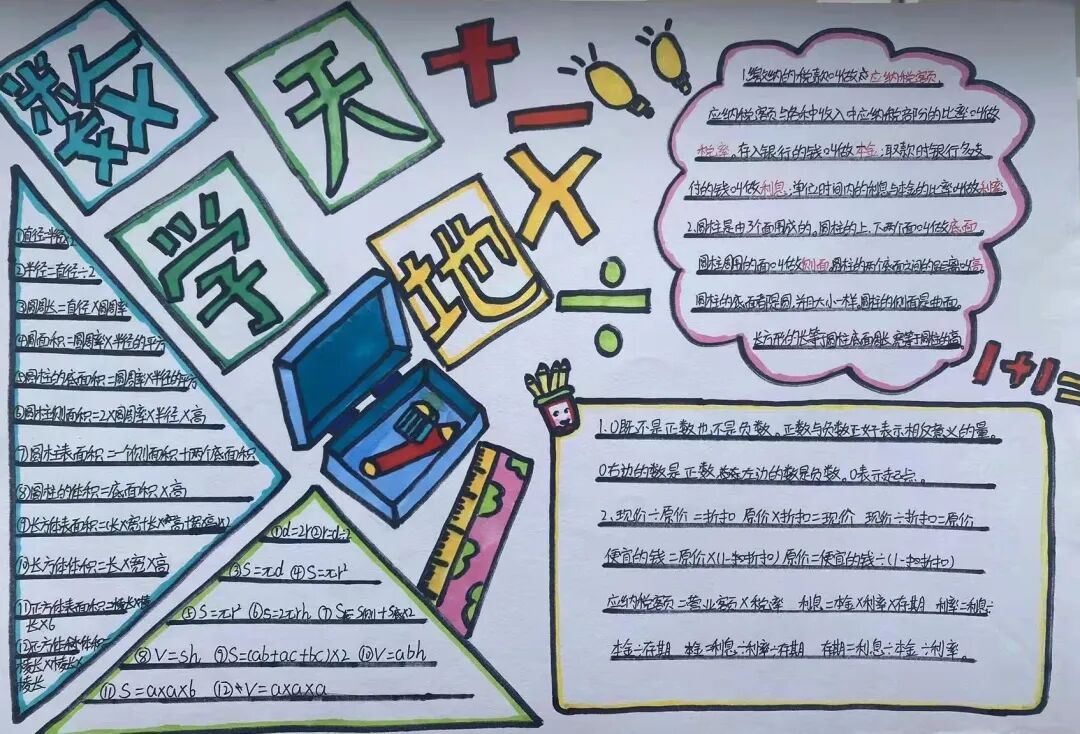 数学天地
+ − × ÷
①直径=半径×2
②半径=直径÷2
③圆周长=直径×圆周率
④圆面积=圆周率×半径的平方
⑤圆柱的底面积=圆周率×半径的平方
⑥圆柱侧面积=2×圆周率×半径×高
⑦圆柱表面积=一个侧面积+两个底面积
⑧圆柱的体积=底面积×高
⑨长方体表面积=(长×宽+长×高+宽×高)×2
⑩长方体体积=长×宽×高
⑪正方体表面积=棱长×棱
长×6
⑫正方体体积=
棱长×棱长×
棱长
①d=2r②r=d÷2
③S=πd ④S=πr²
⑤S=πr² ⑥s=2πrh ⑦S表=S侧+S底×2
⑧V=sh, ⑨S=(ab+ac+bc)×2 ⑩V=abh
⑪S=a×a×6 ⑫V=a×a×a
1.缴纳的税款叫做应纳税额,
应纳税额与各种收入中应纳税部分的比率叫做
税率,存入银行的钱叫做本金;取款时银行多支
付的钱叫做利息,单位时间内的利息与本金的比率叫做利率
2.圆柱是由3个面围成的。圆柱的上、下两个面叫做底面
圆柱周围的面叫做侧面,圆柱的两个底面之间的距离叫高
圆柱的底面都是圆,并且大小一样,圆柱的侧面是曲面,
长方形的长等于圆柱底面周长,宽等于圆柱的高。
1+1=
1、0既不是正数也不是负数。正数与负数正好表示相反意义的量。
0右边的数是正数,左边的数是负数。0表示起点。
2、现价÷原价=折扣 原价×折扣=现价 现价÷折扣=原价
便宜的钱=原价×(1-折扣) 原价=便宜的钱÷(1-折扣)
应纳税额=营业额×税率 利息=本金×利率×存期 利率=利息÷
本金÷存期 本金=利息÷利率÷存期 存期=利息÷本金÷利率。